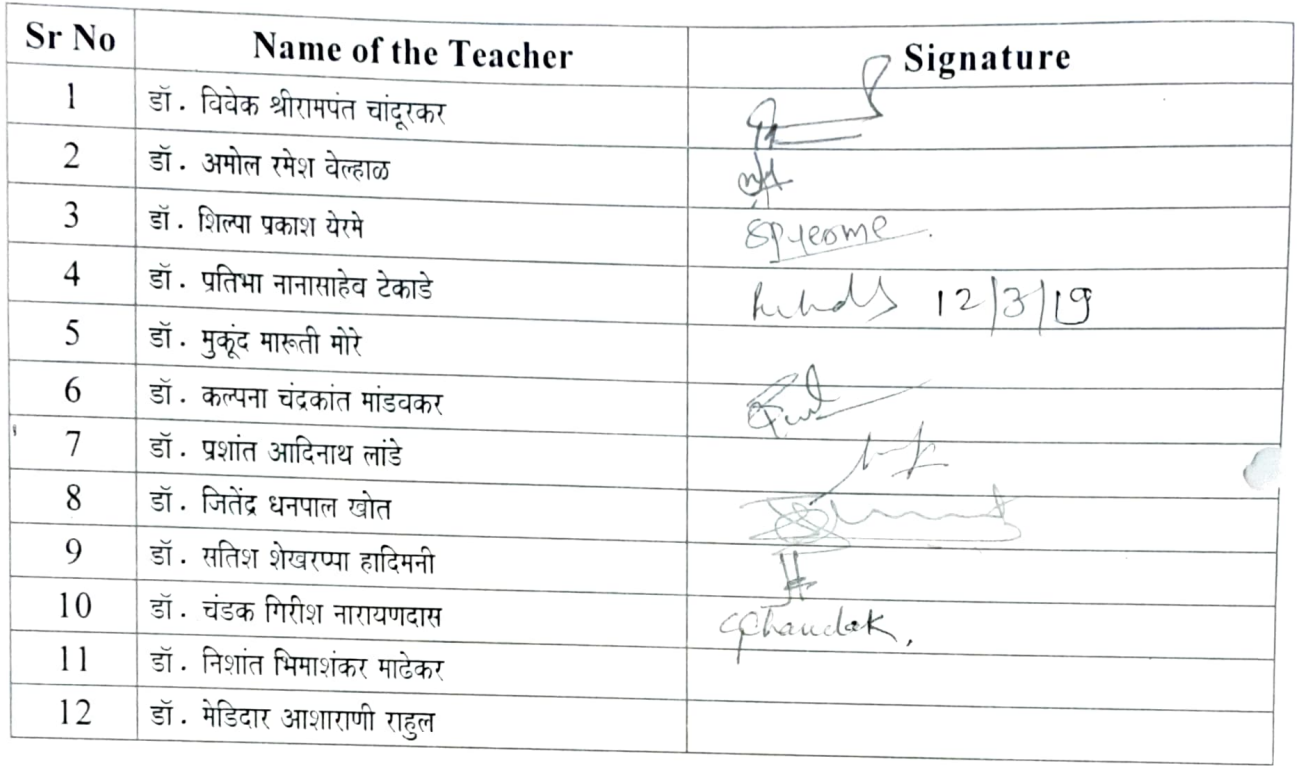 Sr No Name of the Teacher Signature
1 डॉ. विवेक श्रीरामपंत चांदूरकर
2 डॉ. अमोल रमेश वेल्हाळ
3 डॉ. शिल्पा प्रकाश येरमे SPYerome.
4 डॉ. प्रतिभा नानासाहेव टेकाडे 12/3/19
5 डॉ. मुकूंद मारूती मोरे
6 डॉ. कल्पना चंद्रकांत मांडवकर
7 डॉ. प्रशांत आदिनाथ लांडे
8 डॉ. जितेंद्र धनपाल खोत
9 डॉ. सतिश शेखरप्पा हादिमनी
10 डॉ. चंडक गिरीश नारायणदास GChandak,
11 डॉ. निशांत भिमाशंकर माढेकर
12 डॉ. मेडिदार आशाराणी राहुल